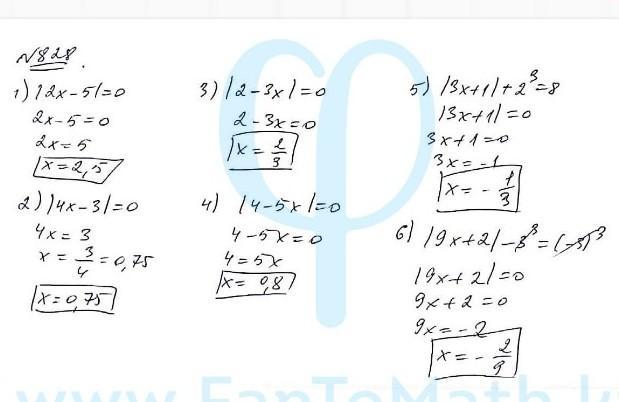 №828.
1) |2x-5|=0
2x-5=0
2x=5
x=2,5
2) |4x-3|=0
4x=3
x=3/4=0,75
x=0,75
3) |2-3x|=0
2-3x=0
x=2/3
4) |4-5x|=0
4-5x=0
4=5x
x=0,8
5) |3x+1|+2³=8
|3x+1|=0
3x+1=0
3x=-1
x=-1/3
6) |9x+2|-3³=(-3)³
|9x+2|=0
9x+2=0
9x=-2
x=-2/9